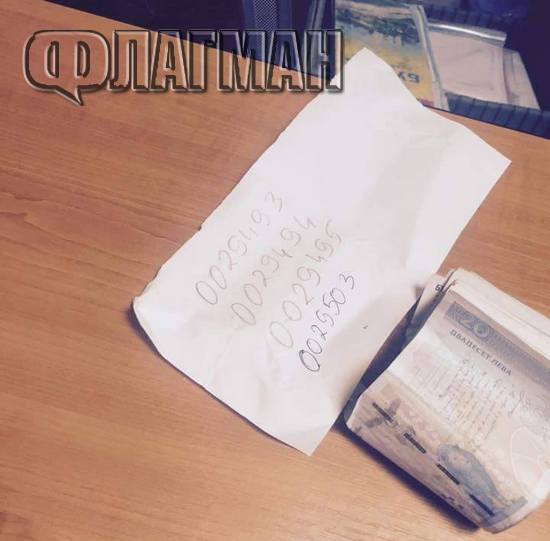 ФЛАГМАН
БУ
0029493
0029494
0029495
0029503
20
ДВАДЕСЕТ ЛЕВА